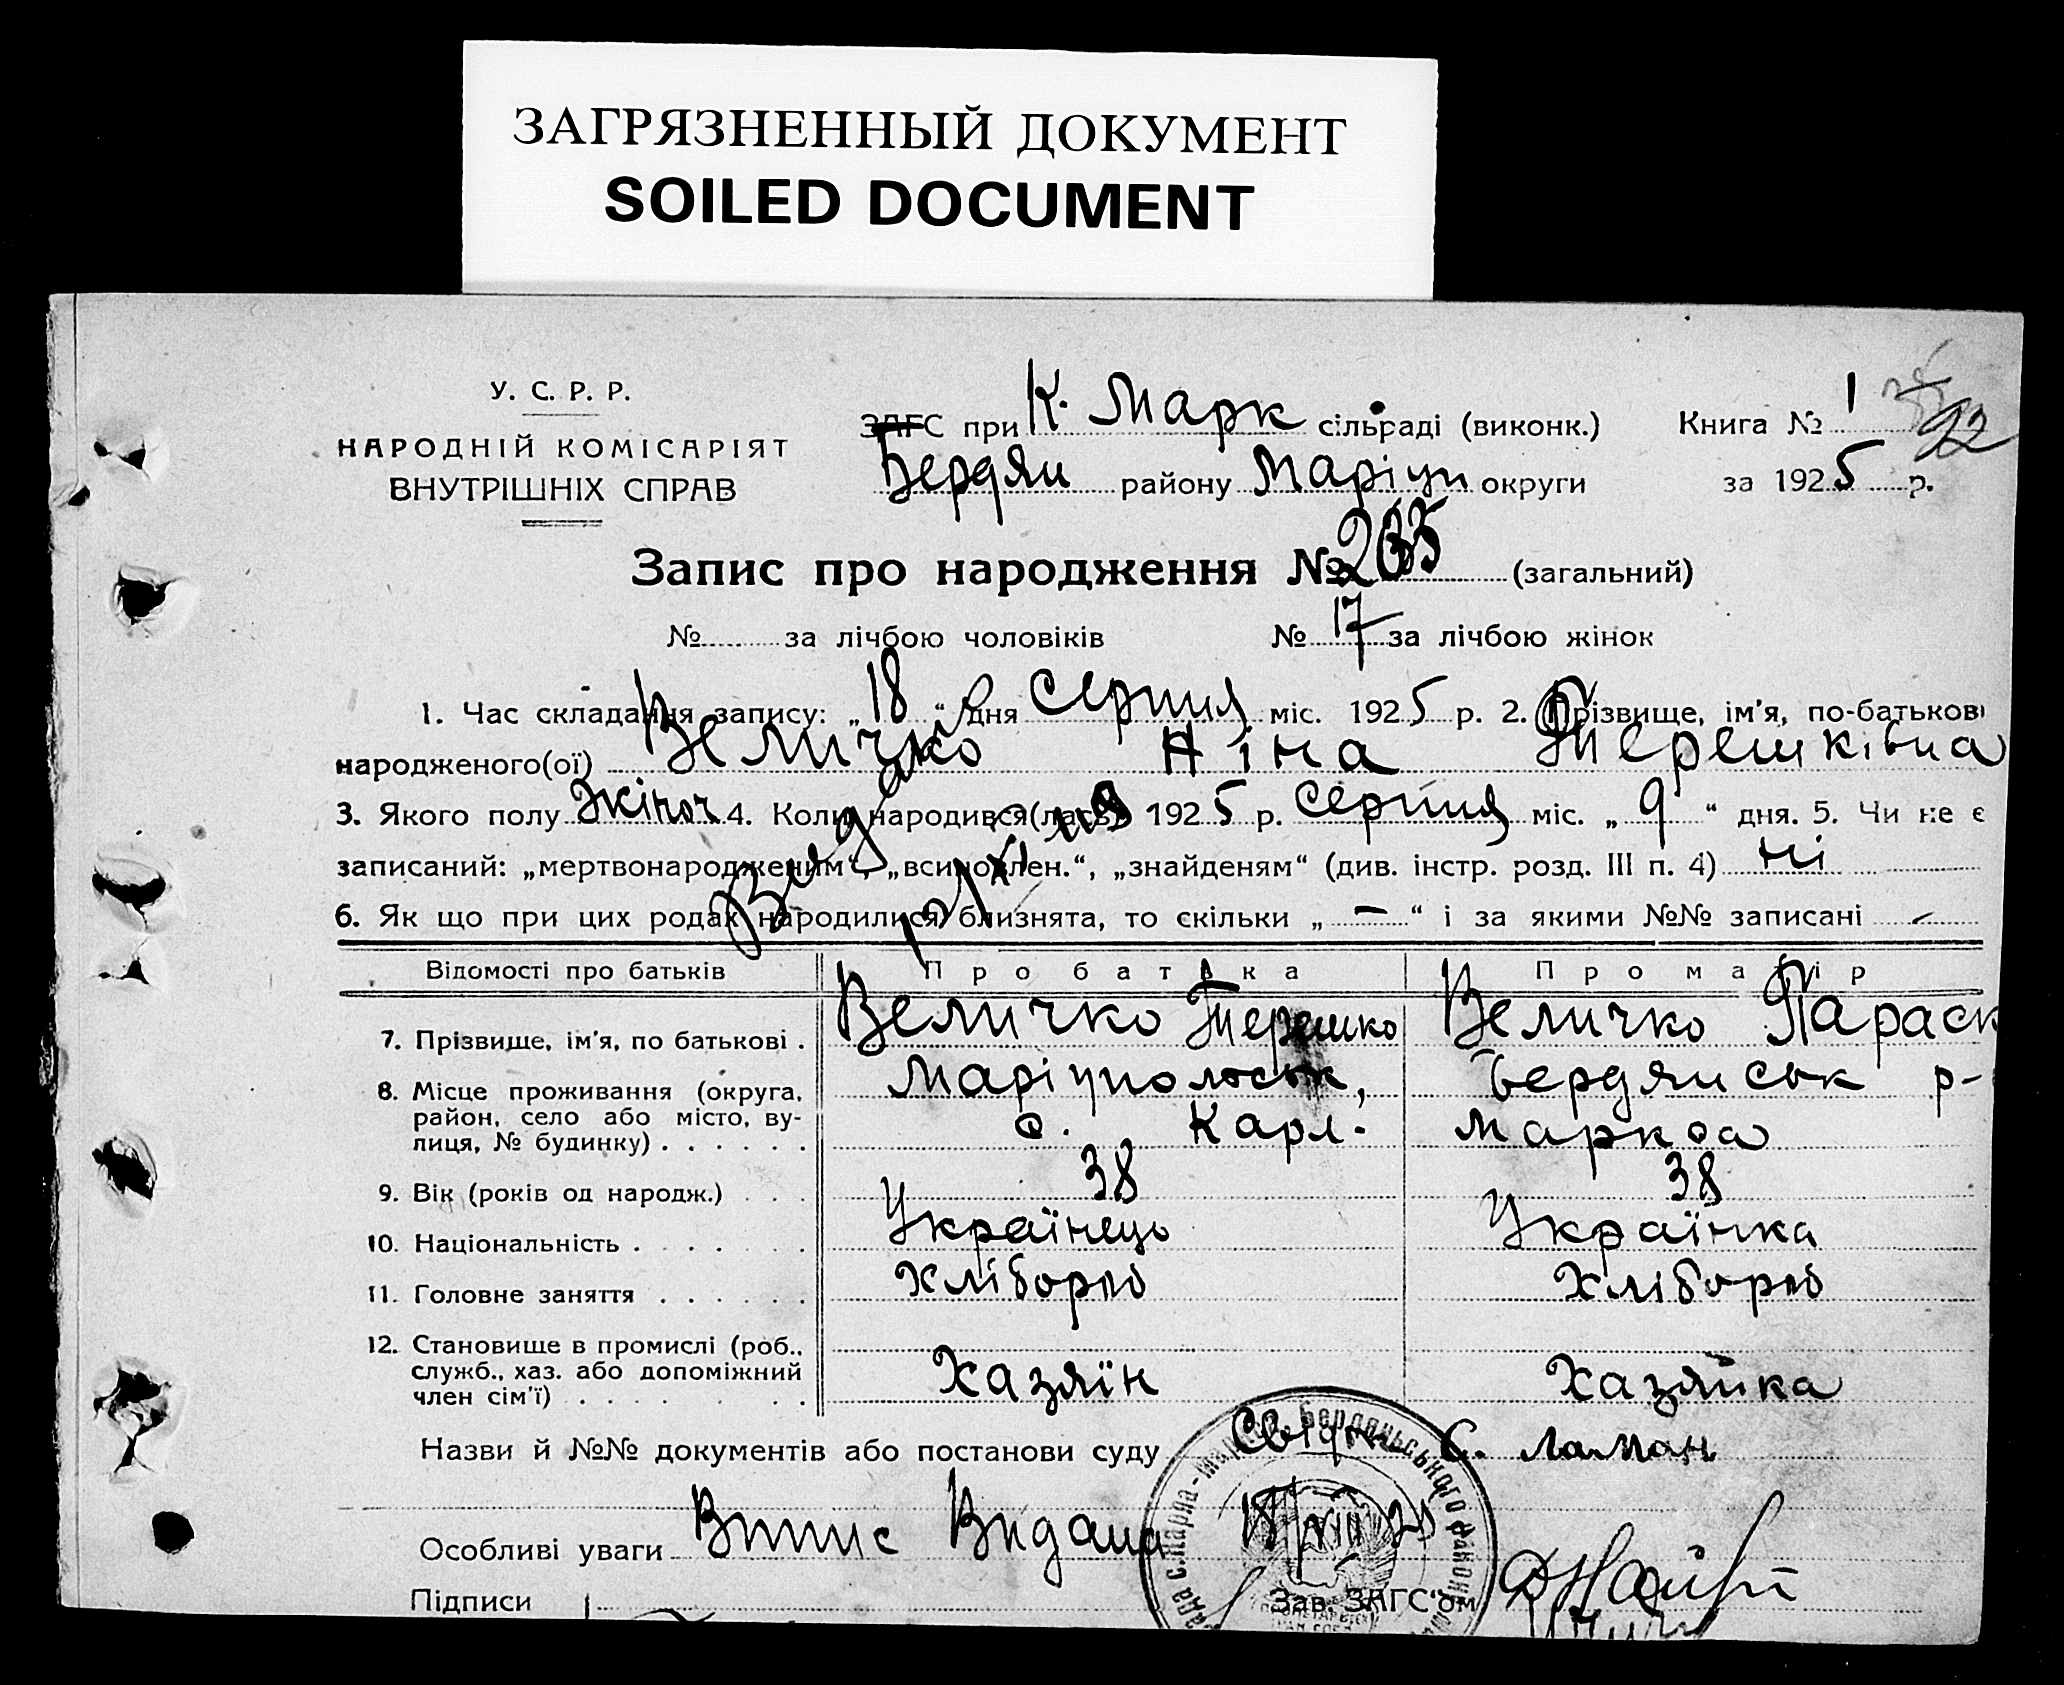 ЗАГРЯЗНЕННЫЙ ДОКУМЕНТ
SOILED DOCUMENT
У. С. Р. Р.
НАРОДНІЙ КОМІСАРІЯТ
ВНУТРІШНІХ СПРАВ
ЗАГС при К. Марк сільраді (виконк.)
Бердян району Маріуп округи
Книга № 1
92
за 1925 р.
Запис про народження № 235 (загальний)
№ за лічбою чоловіків № 17 за лічбою жінок
1. Час складання запису: „18“ дня серпня міс. 1925 р. 2. Прізвище, ім'я, по-батькові
народженого(ої) Величко Ніна Терешківна
3. Якого полу жіноч 4. Коли народився(лась) 1925 р. серпня міс. „9“ дня. 5. Чи не є
записаний: „мертвонародженим“, „всиновлен.“, „знайденям“ (див. інстр. розд. III п. 4) ні
6. Як що при цих родах народилися близнята, то скільки „—“ і за якими №№ записані —
Відомості про батьків Про батька Про матір
7. Прізвище, ім'я, по батькові . Величко Терешко Величко Параск
8. Місце проживання (округа, Маріупольськ, Бердянськ р-
район, село або місто, ву- с. Карл- Маркса
лиця, № будинку) . . . . . .
9. Вік (років од народж.) . . . 38 38
10. Національність . . . . . . Українець Українка
11. Головне заняття . . . . . . Хлібороб Хлібороб
12. Становище в промислі (роб.,
служб., хаз. або допоміжний Хазяїн Хазяйка
член сім'ї) . . . . . . .
Назви й №№ документів або постанови суду
Особливі уваги Витис Видана
Підписи Зав. ЗАГС'ом